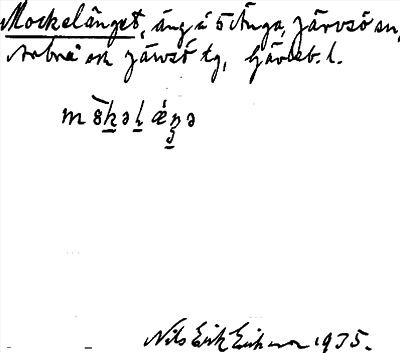 Mockelänget, äng i 5 Änga, Järvsö sn,
Arbrå ok Järvsö tg, Gävleb. l.
m 8kəl ǽŋə
Nils Erik Erikson 1935.